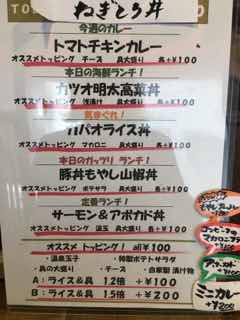 ねぎとろ丼
今週のカレー
トマトチキンカレー
オススメトッピング チーズ 具大盛り 各+¥100
本日の海鮮ランチ!
カツオ明太高菜丼
オススメトッピング 浅漬け 具大盛り 各+¥100
気まぐれ!
ガパオライス丼
オススメトッピング マカロニ 具大盛り 各+¥100
本日のガッツリ ランチ!
豚丼もやし山椒丼
オススメトッピング ポテサラ 具大盛り 各+¥100
定番ランチ!
サーモン&アボカド丼
オススメトッピング 温玉 具大盛り 各+¥100
オススメ トッピング! all¥100
・温泉玉子 ・特製ポテトサラダ
・具の大盛り ・チーズ ・自家製 漬け物
A:ライス&具 1.2倍 +¥100
B:ライス&具 1.5倍 +¥200
ミニカレー
+¥200